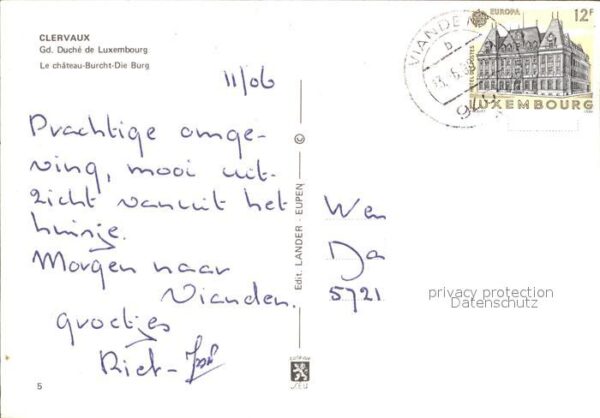 CLERVAUX
Gd. Duché de Luxembourg
Le château-Burcht-Die Burg
11/06
Prachtige omge-
ving, mooi uit-
zicht vanuit het
huisje.
Morgen naar
Vianden.
groetjes
Riet-
5
Edit. LANDER - EUPEN ©
EUROPA 12F
HOTEL DES POSTES
LUXEMBOURG
VIANDEN
b
13.6.
Wen
Da
5721
privacy protection
Datenschutz